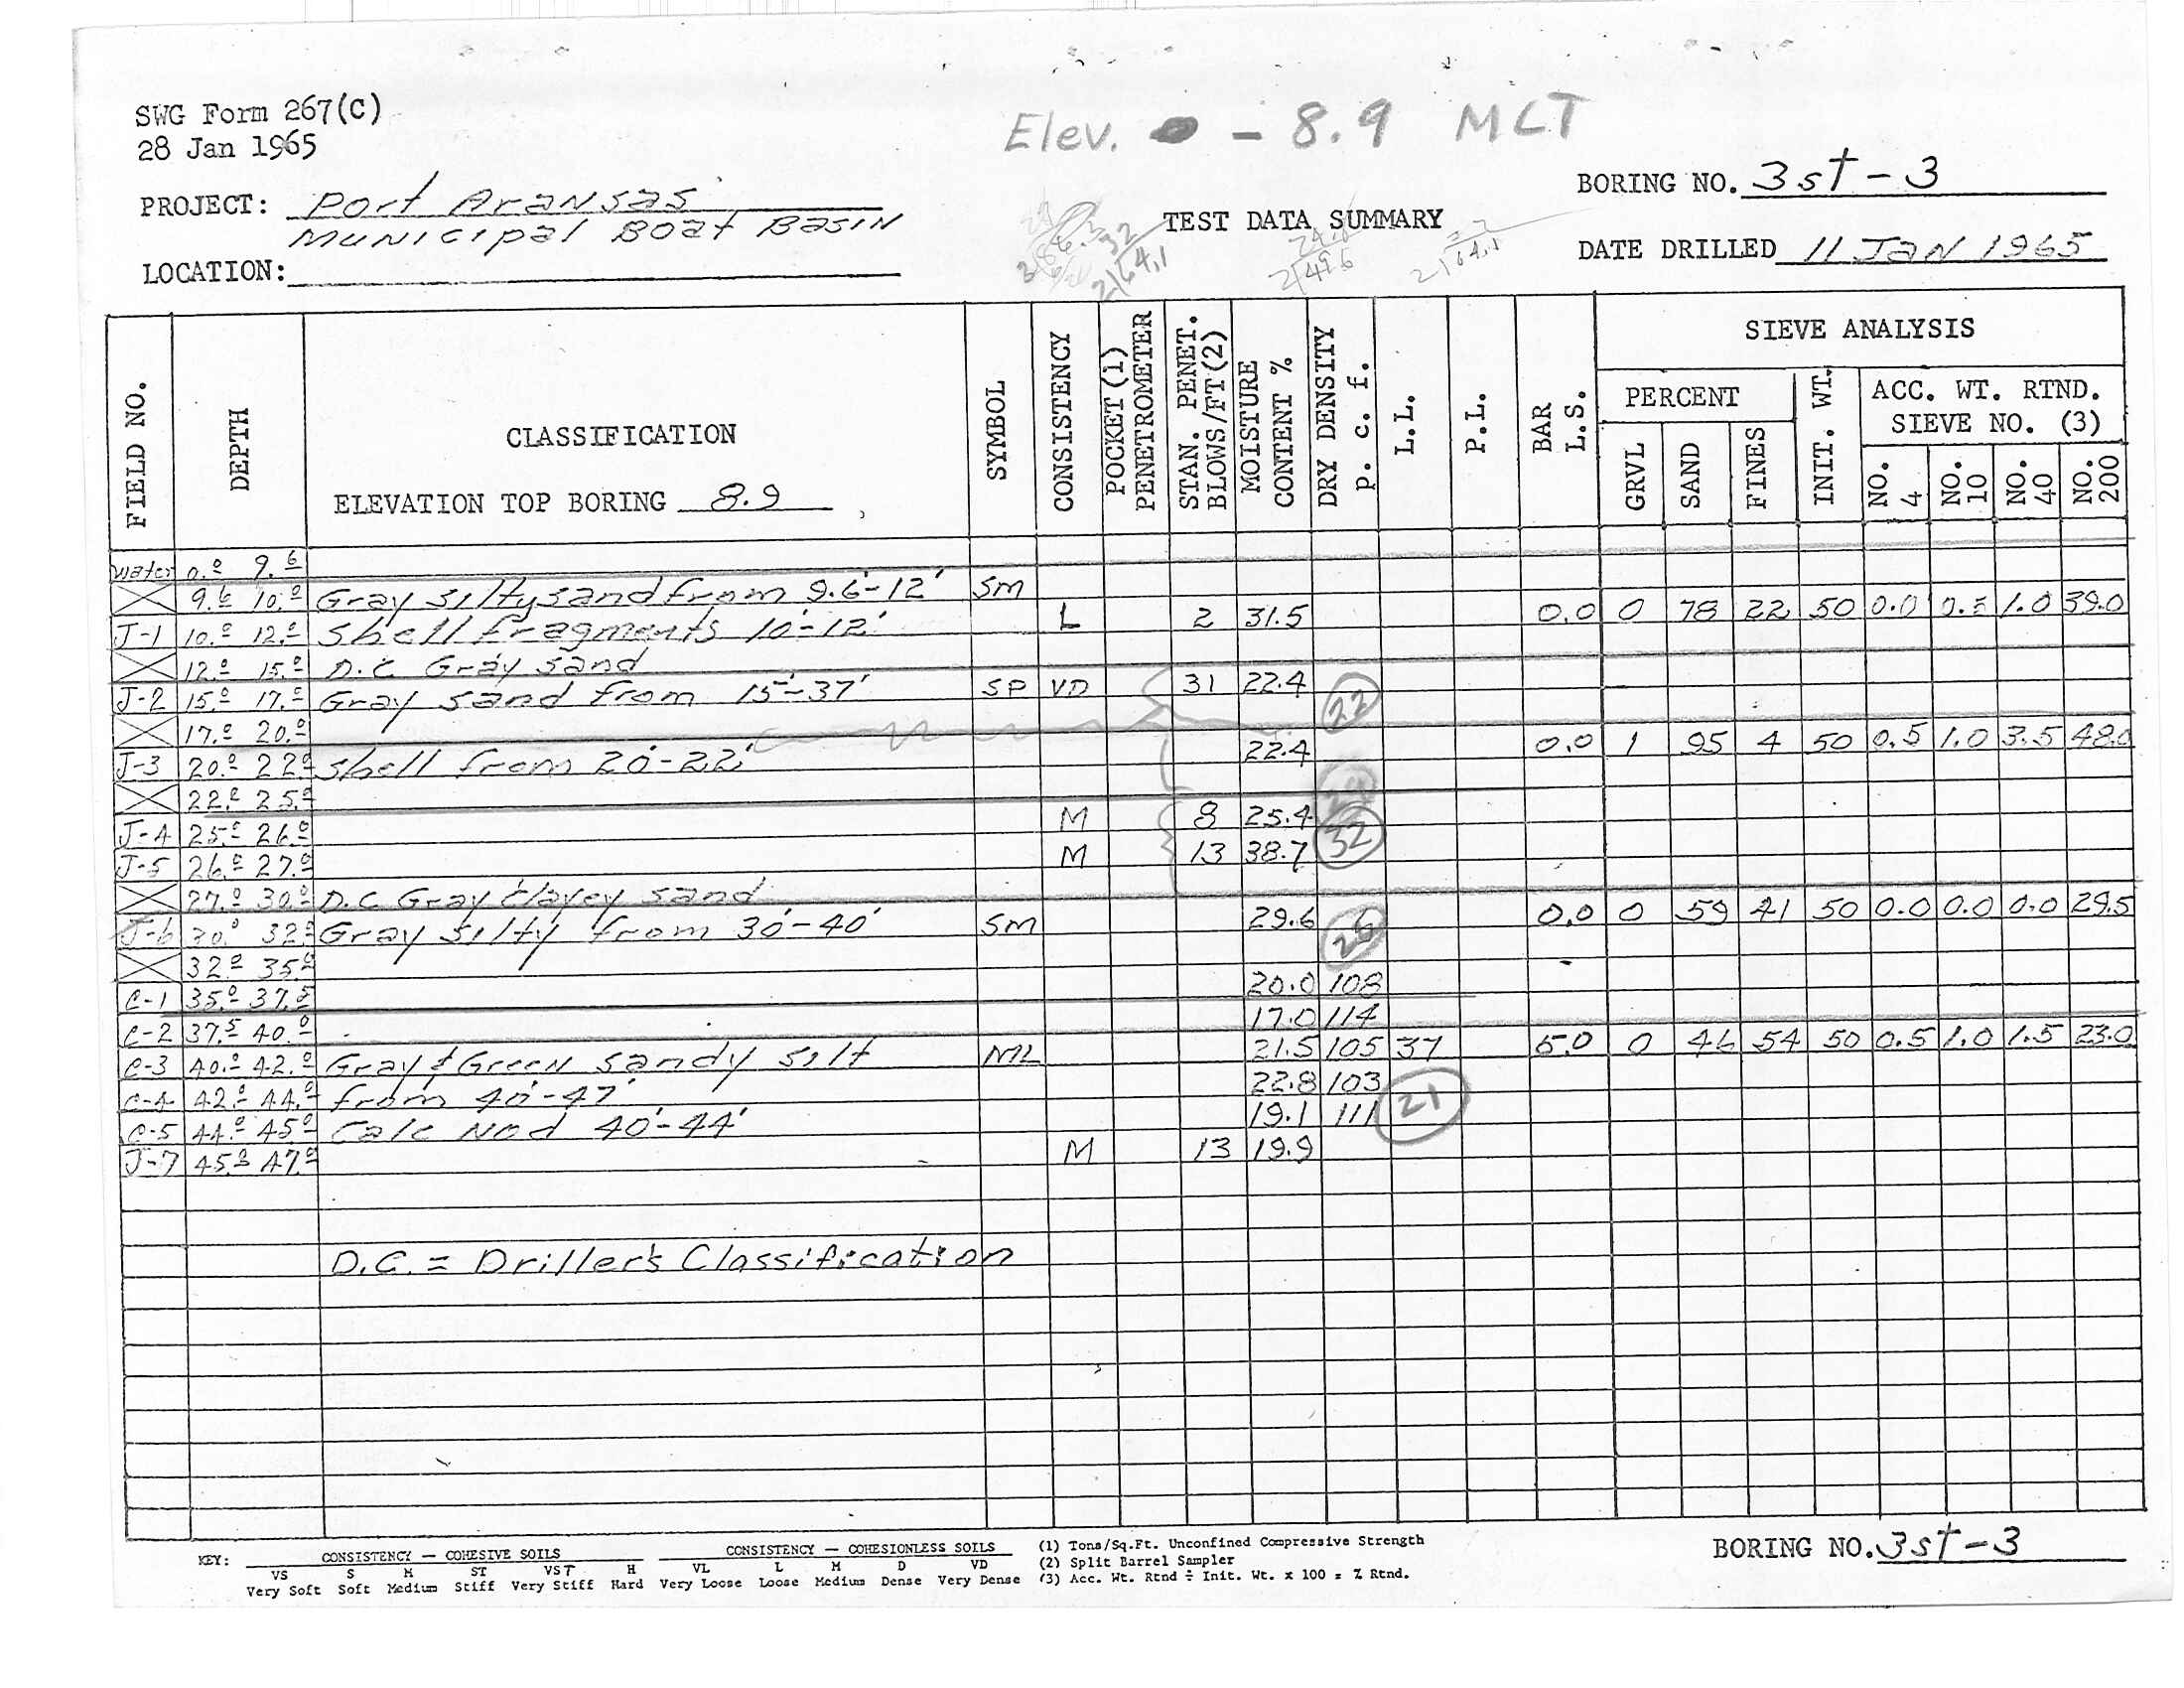 SWG Form 267(C)
28 Jan 1965
Elev. - 8.9 MLT
PROJECT: Port Aransas
Municipal Boat Basin
LOCATION:
TEST DATA SUMMARY
BORING NO. 3st-3
DATE DRILLED 11 Jan 1965
32
2/64.1
2/49.6
2/64.1
FIELD NO. DEPTH CLASSIFICATION SYMBOL CONSISTENCY POCKET (1) PENETROMETER STAN. PENET. BLOWS/FT(2) MOISTURE CONTENT % DRY DENSITY p. c. f. L.L. P.L. BAR L.S. SIEVE ANALYSIS
PERCENT INIT. WT. ACC. WT. RTND. SIEVE NO. (3)
GRVL SAND FINES NO. 4 NO. 10 NO. 40 NO. 200
ELEVATION TOP BORING 8.9
water 0.0 9.6
9.6 10.0 Gray silty sand from 9.6'-12' SM
J-1 10.0 12.0 Shell fragments 10'-12' L 2 31.5 0.0 0 78 22 50 0.0 0.5 1.0 39.0
12.0 15.0 D.C Gray sand
J-2 15.0 17.0 Gray sand from 15'-37' SP VD 31 22.4 22
17.0 20.0
J-3 20.0 22.0 Shell from 20'-22' 22.4 0.0 1 95 4 50 0.5 1.0 3.5 48.0
22.0 25.0
J-4 25.0 26.0 M 8 25.4
J-5 26.0 27.0 M 13 38.7 32
27.0 30.0 D.C Gray clayey sand
J-6 30.0 32.0 Gray silty from 30'-40' SM 29.6 0.0 0 59 41 50 0.0 0.0 0.0 29.5
32.0 35.0
C-1 35.0 37.5 20.0 108
C-2 37.5 40.0 17.0 114
C-3 40.0 42.0 Gray & Green sandy silt ML 21.5 105 37 5.0 0 46 54 50 0.5 1.0 1.5 23.0
C-4 42.0 44.0 from 40'-47' 22.8 103
C-5 44.0 45.0 Calc Nod 40'-44' 19.1 111 21
J-7 45.0 47.0 M 13 19.9
D.C. = Driller's Classification
KEY: CONSISTENCY — COHESIVE SOILS CONSISTENCY — COHESIONLESS SOILS
VS S M ST VST H VL L M D VD
Very Soft Soft Medium Stiff Very Stiff Hard Very Loose Loose Medium Dense Very Dense
(1) Tons/Sq.Ft. Unconfined Compressive Strength
(2) Split Barrel Sampler
(3) Acc. Wt. Rtnd ÷ Init. Wt. x 100 = % Rtnd.
BORING NO. 3st-3